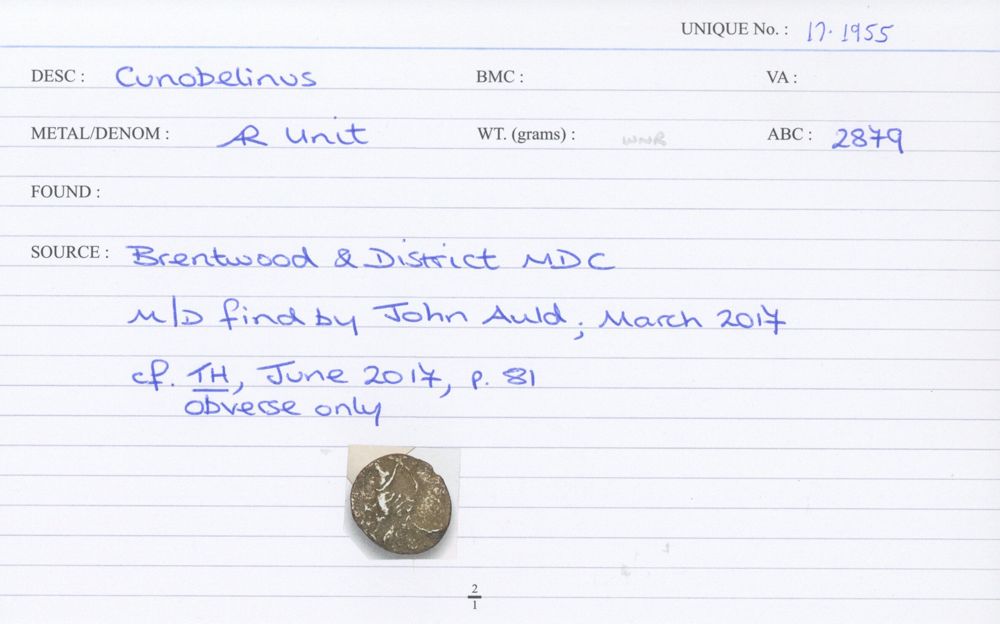 UNIQUE No. : 17.1955
DESC : Cunobelinus BMC : VA :
METAL/DENOM : AR Unit WT. (grams) : ABC : 2879
FOUND :
SOURCE : Brentwood & District MDC
M/D find by John Auld, March 2017
cf. TH, June 2017, p. 81
obverse only
2
1